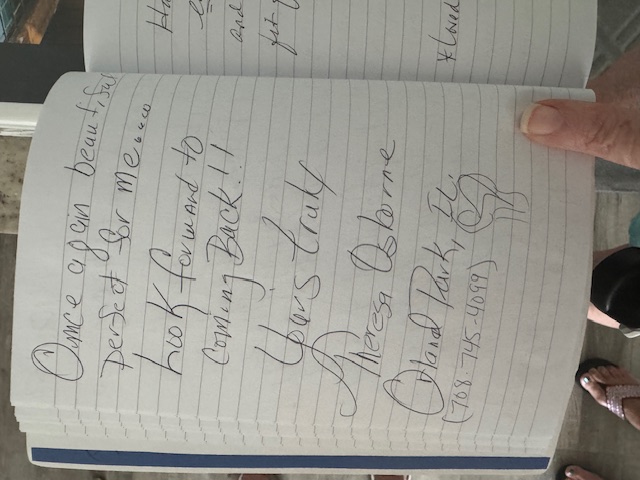 Ounce again beautiful
perfect for me.....
Look forward to
coming Back!!
Yours truly
Theresa Osborne
Orland Park, IL.
(708-745-4099)
and